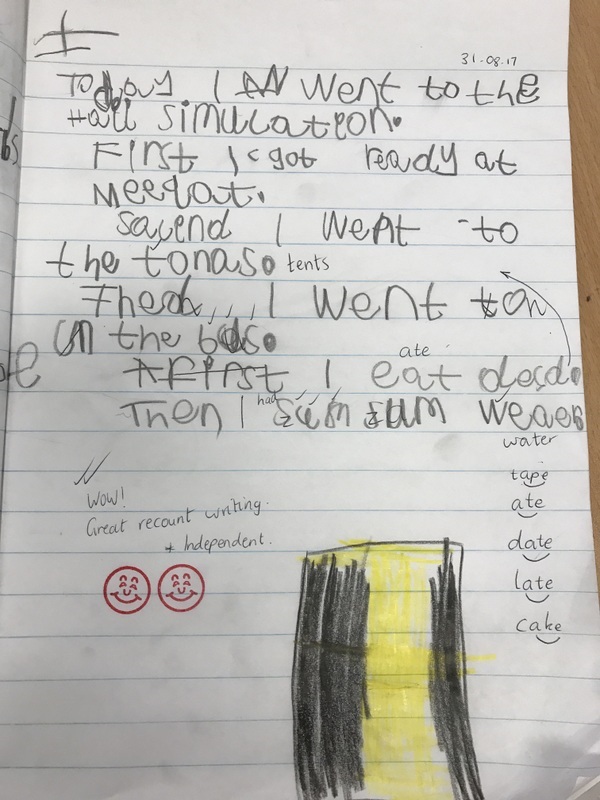 31.08.17
Today I went to the
Hall simulation.
First I got ready at
Meeqat.
Sacend I went to
the tonaso tents
Thed,,,, I went on
un the bus.
ate
First I eat
had
Then I sum weaer
water
tape
ate
date
late
cake
Wow!
Great recount writing.
+ Independent.